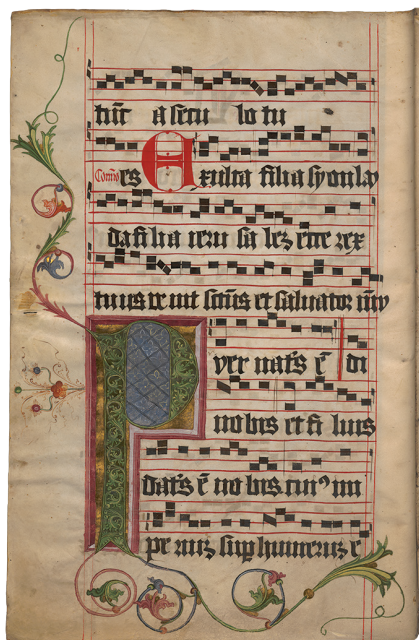 runt a secu lo tu
Co͞mo es Exulta filia syon lau
da fi lia ieru sa lez ecce rex
tuus ve nit sctūs et saluator mū
Puer nat9s ē di
nobis et fi lius
dat9s ē no bis cui9 im
pe riuz sup humeruz e